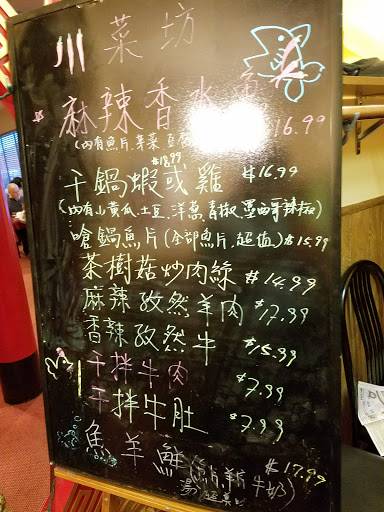 川菜坊
麻辣香水魚 $16.99
(內有魚片,芽菜,豆
$18.99
干鍋蝦或雞 $16.99
(內有小黃瓜,土豆,洋蔥,青椒,墨西哥辣椒)
嗆鍋魚片(全部魚片,超值) $15.99
茶樹菇炒肉絲 $14.99
麻辣孜然羊肉 $17.99
香辣孜然牛 $15.99
干拌牛肉 $7.99
干拌牛肚 $7.99
魚羊鮮 $17.99
牛奶)
湯